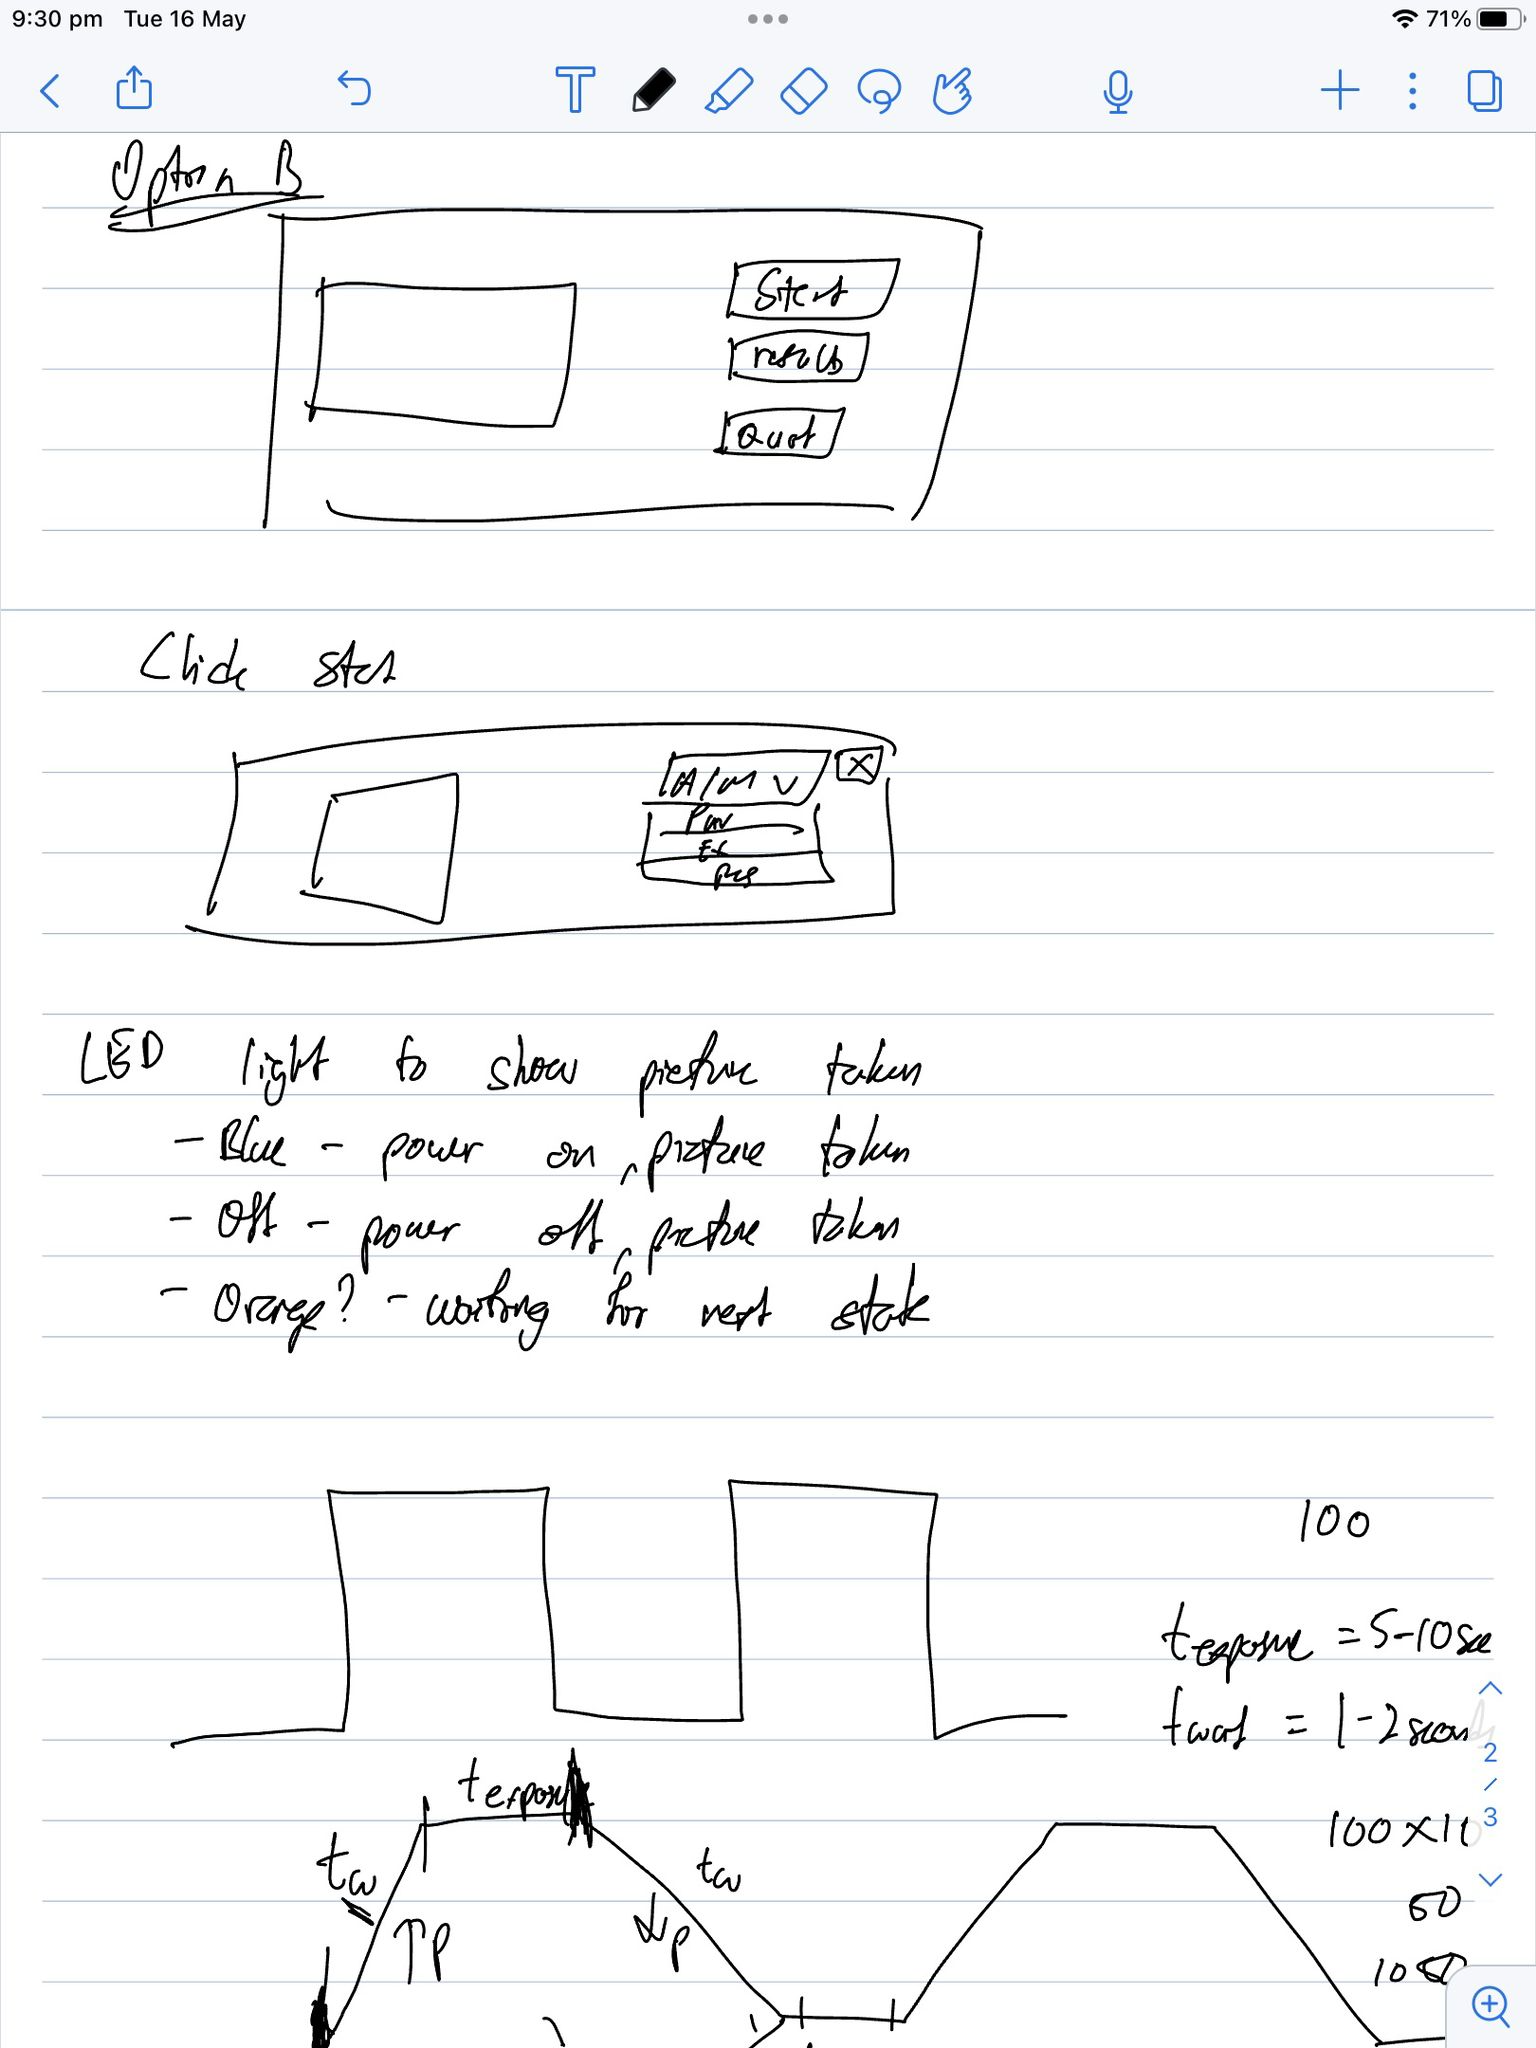 9:30 pm Tue 16 May 71%
Option B
Start
results
Quit
Click start
A/M V X
Pow
Ex
Res
LED light to show picture taken
- Blue - power on, picture taken
- Off - power off, picture taken
- Orange? - waiting for next state
100
t exposure = 5-10 sec
t wait = 1-2 second
2
/
3
t exposure
100 x 10
tw
tw
60
↑P
↓P